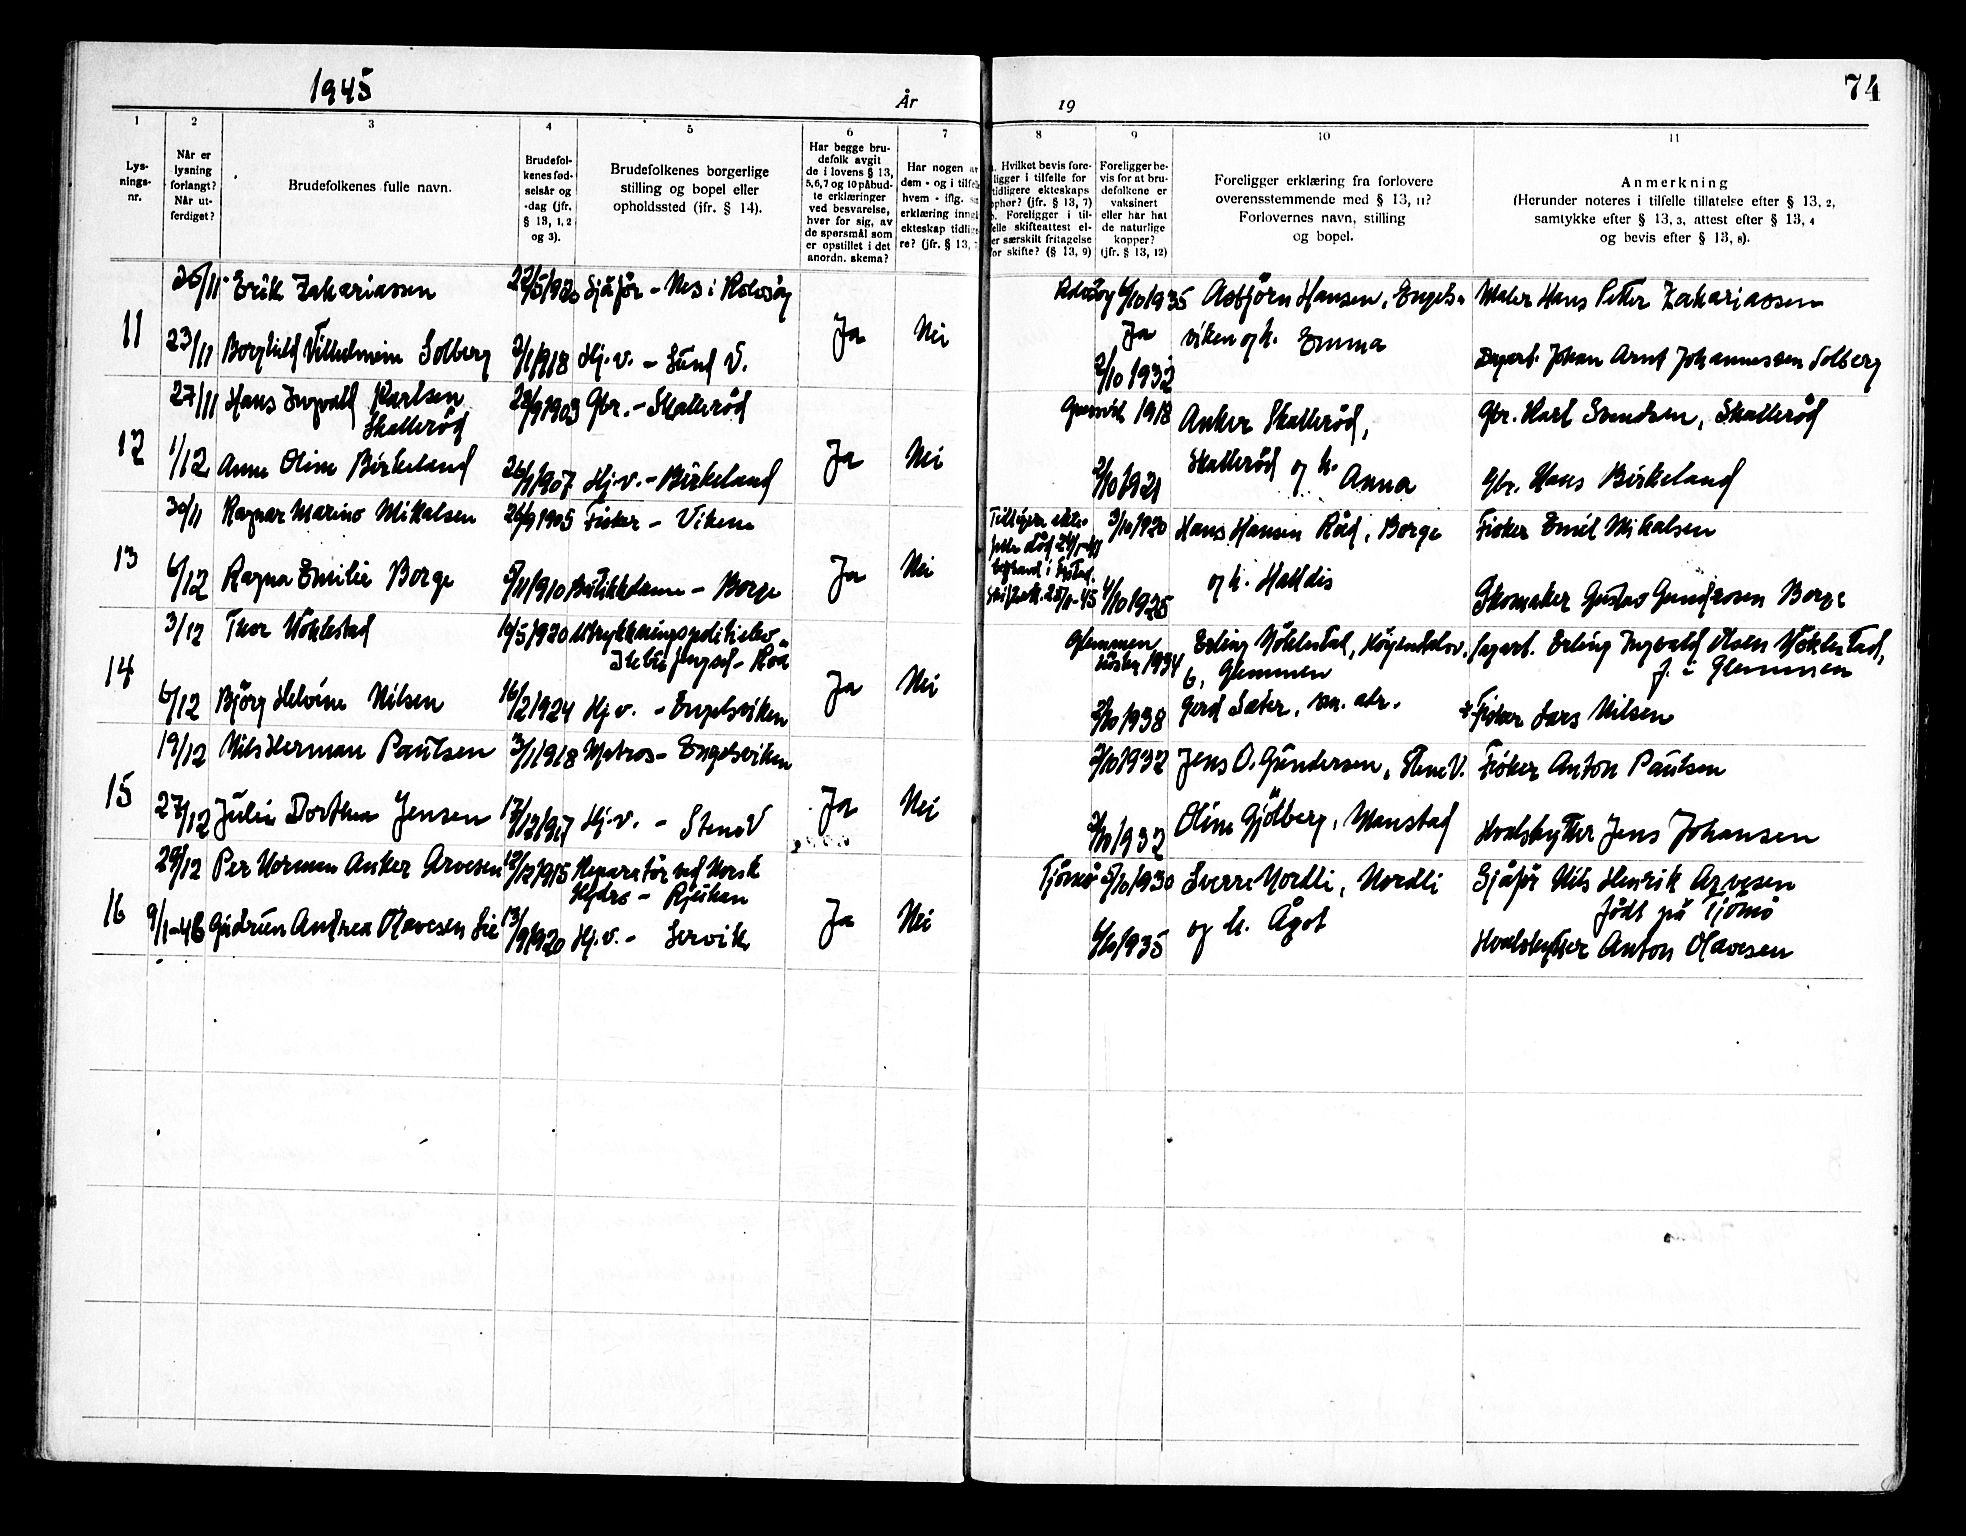 1945
År
19
74
1
2
3
4
5
6
7
8
9
10
11
Lys-
nings-
nr.
Når er
lysning
forlangt?
Når ut-
ferdiget?
Brudefolkenes fulle navn.
Brudefol-
kenes fød-
selsår og
-dag (jfr.
§ 13, 1, 2
og 3).
Brudefolkenes borgerlige
stilling og bopel eller
opholdssted (jfr. § 14).
Har begge bru-
defolk avgit
de i lovens § 13,
5,6,7 og 10 påbud-
te erklæringer
ved besvarelse,
hver for sig, av
de spørsmål som
er opstillet i det
anordn. skema?
Har nogen av
dem - og i tilfelle
hvem - iflg. sin
erklæring inngå
ekteskap tidlige
re? (jfr. § 13,
Hvilket bevis fore-
ligger i tilfelle for
tidligere ekteskaps
ophør? (jfr. § 13, 7)
Foreligger i til-
felle skifteattest el-
er særskilt fritagelse
for skifte? (§ 13, 9)
Foreligger be-
vis for at bru-
defolkene er
vaksinert
eller har hat
de naturlige
kopper?
(jfr. § 13, 12)
Foreligger erklæring fra forlovere
overensstemmende med § 13, 11?
Forlovernes navn, stilling
og bopel.
Anmerkning
(Herunder noteres i tilfelle tillatelse efter § 13, 2,
samtykke efter § 13, 3, attest efter § 13, 4
og bevis efter § 13, 8).
26/11 Erik Zakariassen 22/5 1920 Sjåfør - Nes i Rolvsøy Rolvsøy 6/10 1935 Asbjörn Hansen, Engels- Maler Hans Petter Zakariassen
11 23/11 Borghild Vilhelmine Solberg 2/1 1918 Hj.v. - Sund V. Ja Nei Ja viken og h. Emma Johan Arnt Johannessen Solberg
2/10 1932
27/11 Hans Ingvald Karlsen 22/9 1903 Gbr. - Skallerød 1918 Anker Skallerød, Gbr. Karl Svendsen, Skallerød
Skallerød
12 1/12 Anne Oline Birkeland 26/1 1907 Hj.v. - Birkeland Ja Nei 2/10 1921 Skallerød og h. Anna Gbr. Hans Birkeland
30/11 Ragnar Marino Mikalsen 26/9 1905 Fisker - Vikene Tidligere ekte- 3/10 1920 Hans Hansen Röd, Borge Fisker Emil Mikalsen
13 6/12 Ragna Emilie Borge 5/11 1910 Butikkdame - Borge Ja Nei 4/10 1925 og h. Halldis Skomaker Gustav Gundrosen Borge
3/12 Thor Vöklestad 14/5 1920 Utrykkningspolitielev Glemmen Erling Vöklestad, Höyendalsv. Erling Ingvald Olsen Vöklestad,
- Röd 1934 6, Glemmen f. i Glemmen
14 6/12 Björg Helvine Nilsen 16/2 1924 Hj.v. - Engelsviken Ja Nei 3/10 1938 Gerd Sæter, Fisker Lars Nilsen
19/12 Nils Herman Paulsen 3/1 1918 Matros - Engelsviken 2/10 1932 Jens O. Gundersen, Stene V. Fisker Anton Paulsen
15 27/12 Julie Dorthea Jensen 17/12 1917 Hj.v. - Stene V Ja Nei 2/10 1932 Oline Gjölberg, Manstad Hvalskytter Jens Johansen
29/12 Per Norman Anker Arvesen 12/12 1915 Reparatör ved Norsk Tjömö 5/10 1930 Sverre Nordli, Nordli Sjåfør Nils Henrik Arvesen
Hydro - Rjukan født på Tjömö
16 9/1-46 Gudrun Andrea Olavesen Lie 13/9 1920 Hj.v. - Lervik Ja Nei 6/10 1935 og h. Ågot Hvalskytter Anton Olavesen